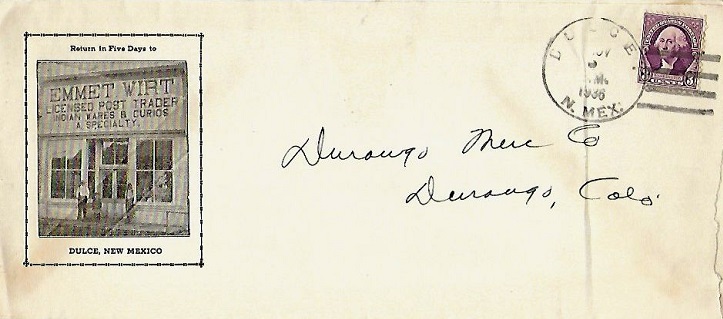 Return in Five Days to
EMMET WIRT
LICENSED POST TRADER
INDIAN WARES & CURIOS
A SPECIALTY.
DULCE, NEW MEXICO
DULCE.
NOV
M.
1936
N. MEX.
3 3
Durango Merc Co
Durango, Colo.